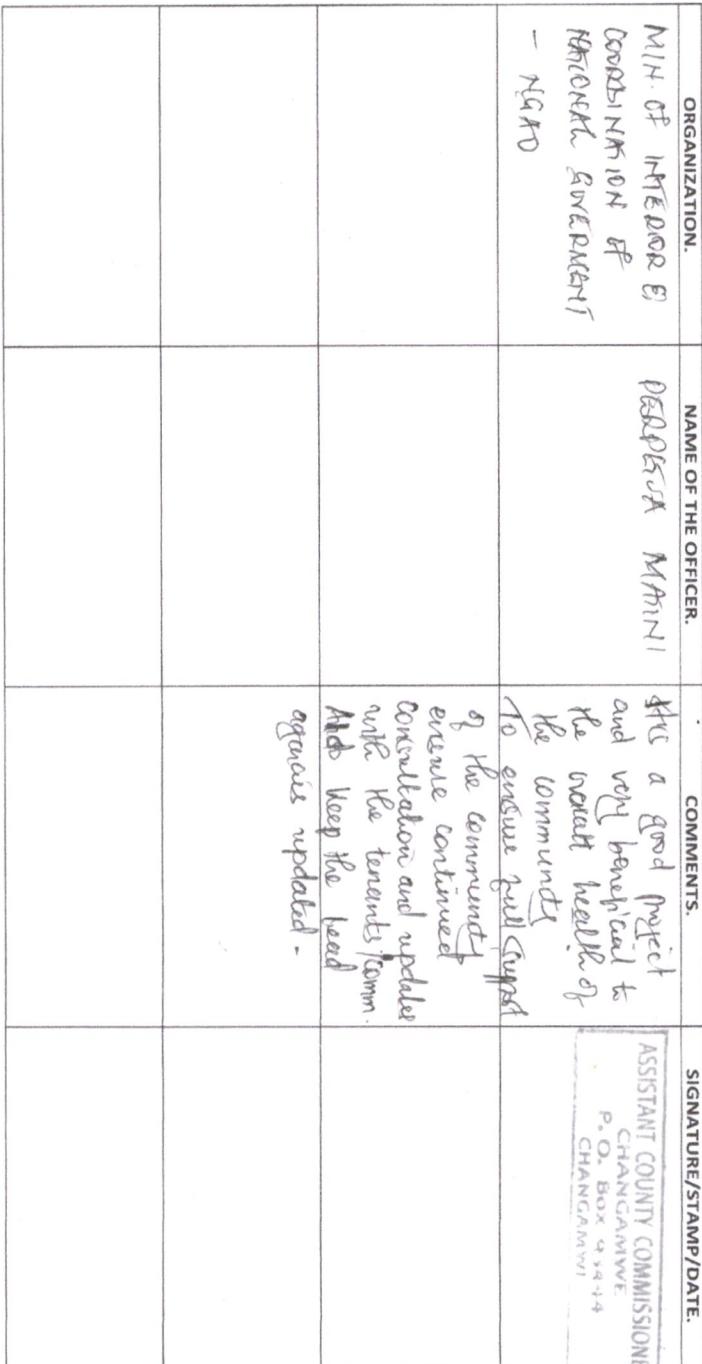 ORGANIZATION.
NAME OF THE OFFICER.
COMMENTS.
SIGNATURE/STAMP/DATE.
MIN. OF INTERIOR &
COORDINATION OF
NATIONAL GOVERMENT
- NGAO
MATINI
a good project
and very beneficial to
the overall health of
the community
To ensure full support
of the community
ensure continued
consultation and updates
with the tenants/comm.
And keep the lead
agencies updated -
ASSISTANT COUNTY COMMISSIONE
CHANGAMWE
P. O. BOX
CHANGAMWE